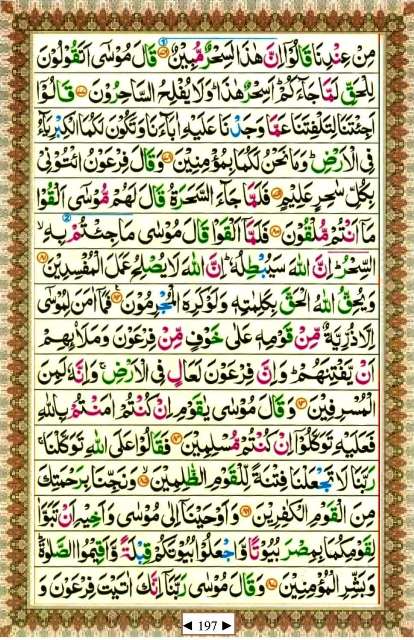 مِنْ عِنْدِنَا قَالُوْۤا اِنَّ هٰذَا لَسِحْرٌ مُّبِیْنٌ ﴿۷۶﴾ قَالَ مُوْسٰۤی اَتَقُوْلُوْنَ
لِلْحَقِّ لَمَّا جَآءَكُمْ ؕ اَسِحْرٌ هٰذَا ؕ وَلَا یُفْلِحُ السَّاحِرُوْنَ ﴿۷۷﴾ قَالُوْۤا
اَجِئْتَنَا لِتَلْفِتَنَا عَمَّا وَجَدْنَا عَلَیْهِ اٰبَآءَنَا وَتَكُوْنَ لَكُمَا الْكِبْرِیَآءُ
فِی الْاَرْضِ ؕ وَمَا نَحْنُ لَكُمَا بِمُؤْمِنِیْنَ ﴿۷۸﴾ وَقَالَ فِرْعَوْنُ ائْتُوْنِیْ
بِكُلِّ سٰحِرٍ عَلِیْمٍ ﴿۷۹﴾ فَلَمَّا جَآءَ السَّحَرَةُ قَالَ لَهُمْ مُّوْسٰۤی اَلْقُوْا
مَاۤ اَنْتُمْ مُّلْقُوْنَ ﴿۸۰﴾ فَلَمَّاۤ اَلْقَوْا قَالَ مُوْسٰی مَا جِئْتُمْ بِهِ ۙ
السِّحْرُ ؕ اِنَّ اللّٰهَ سَیُبْطِلُهٗ ؕ اِنَّ اللّٰهَ لَا یُصْلِحُ عَمَلَ الْمُفْسِدِیْنَ ﴿۸۱﴾
وَیُحِقُّ اللّٰهُ الْحَقَّ بِكَلِمٰتِهٖ وَلَوْ كَرِهَ الْمُجْرِمُوْنَ ﴿۸۲﴾ فَمَاۤ اٰمَنَ لِمُوْسٰۤی
اِلَّا ذُرِّیَّةٌ مِّنْ قَوْمِهٖ عَلٰی خَوْفٍ مِّنْ فِرْعَوْنَ وَمَلَا۟ىِٕهِمْ
اَنْ یَّفْتِنَهُمْ ؕ وَاِنَّ فِرْعَوْنَ لَعَالٍ فِی الْاَرْضِ ۚ وَاِنَّهٗ لَمِنَ
الْمُسْرِفِیْنَ ﴿۸۳﴾ وَقَالَ مُوْسٰی یٰقَوْمِ اِنْ كُنْتُمْ اٰمَنْتُمْ بِاللّٰهِ
فَعَلَیْهِ تَوَكَّلُوْۤا اِنْ كُنْتُمْ مُّسْلِمِیْنَ ﴿۸۴﴾ فَقَالُوْا عَلَی اللّٰهِ تَوَكَّلْنَا ۚ
رَبَّنَا لَا تَجْعَلْنَا فِتْنَةً لِّلْقَوْمِ الظّٰلِمِیْنَ ﴿۸۵﴾ وَنَجِّنَا بِرَحْمَتِكَ
مِنَ الْقَوْمِ الْكٰفِرِیْنَ ﴿۸۶﴾ وَاَوْحَیْنَاۤ اِلٰی مُوْسٰی وَاَخِیْهِ اَنْ تَبَوَّاٰ
لِقَوْمِكُمَا بِمِصْرَ بُیُوْتًا وَّاجْعَلُوْا بُیُوْتَكُمْ قِبْلَةً وَّاَقِیْمُوا الصَّلٰوةَ ؕ
وَبَشِّرِ الْمُؤْمِنِیْنَ ﴿۸۷﴾ وَقَالَ مُوْسٰی رَبَّنَاۤ اِنَّكَ اٰتَیْتَ فِرْعَوْنَ وَ
◄ 197 ►